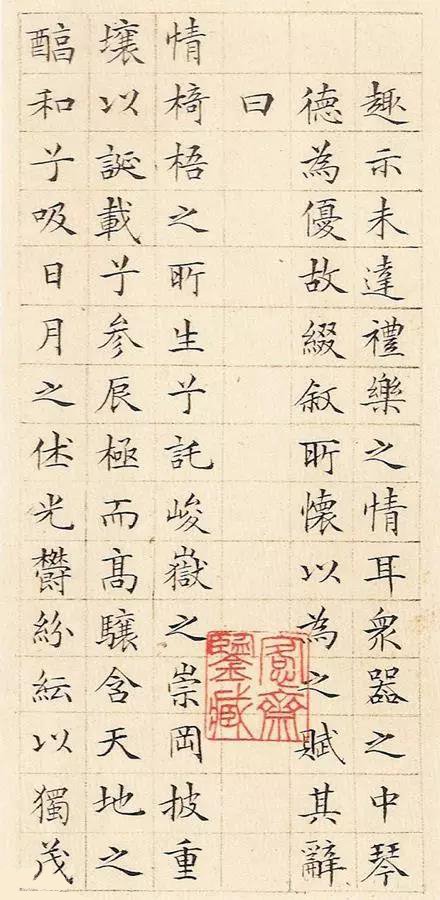 趣示未達禮樂之情耳衆器之中琴
德為優故綴叙所懷以為之賦其辭
曰
情椅梧之所生兮託峻嶽之崇岡披重
壤以誕載兮参辰極而高驤含天地之
醕和兮吸日月之休光鬱紛紜以獨茂
愙齋鑒藏